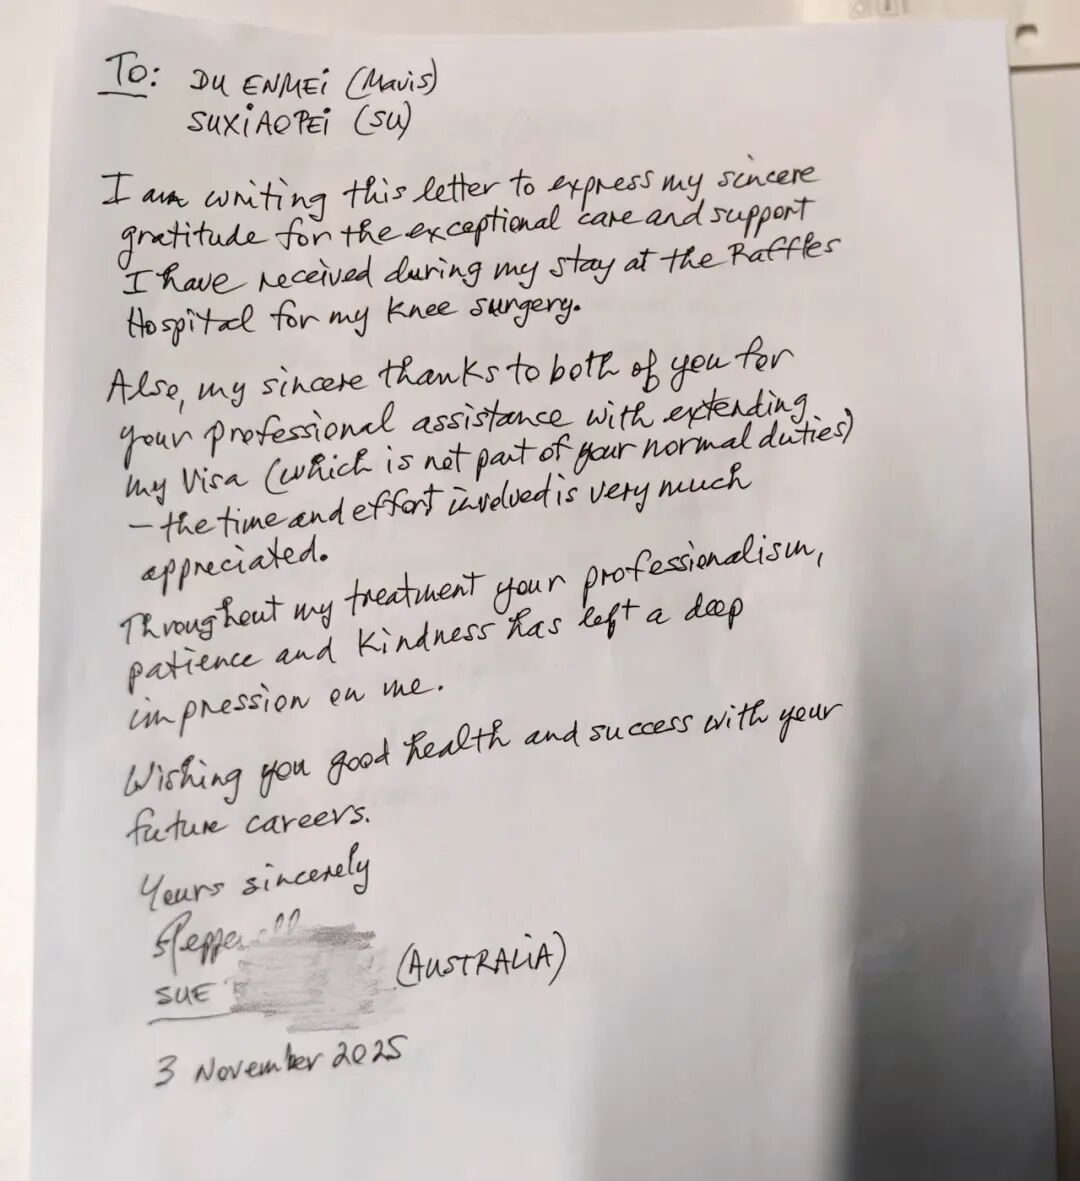 To: DU ENMEi (Mavis)
SUXiAOPEi (SU)
I am writing this letter to express my sincere
gratitude for the exceptional care and support
I have received during my stay at the Raffles
Hospital for my knee surgery.
Also, my sincere thanks to both of you for
your professional assistance with extending
my Visa (which is not part of your normal duties)
– the time and effort involved is very much
appreciated.
Throughout my treatment your professionalism,
patience and kindness has left a deep
impression on me.
Wishing you good health and success with your
future careers.
Yours sincerely
SUE (AUSTRALiA)
3 November 2025